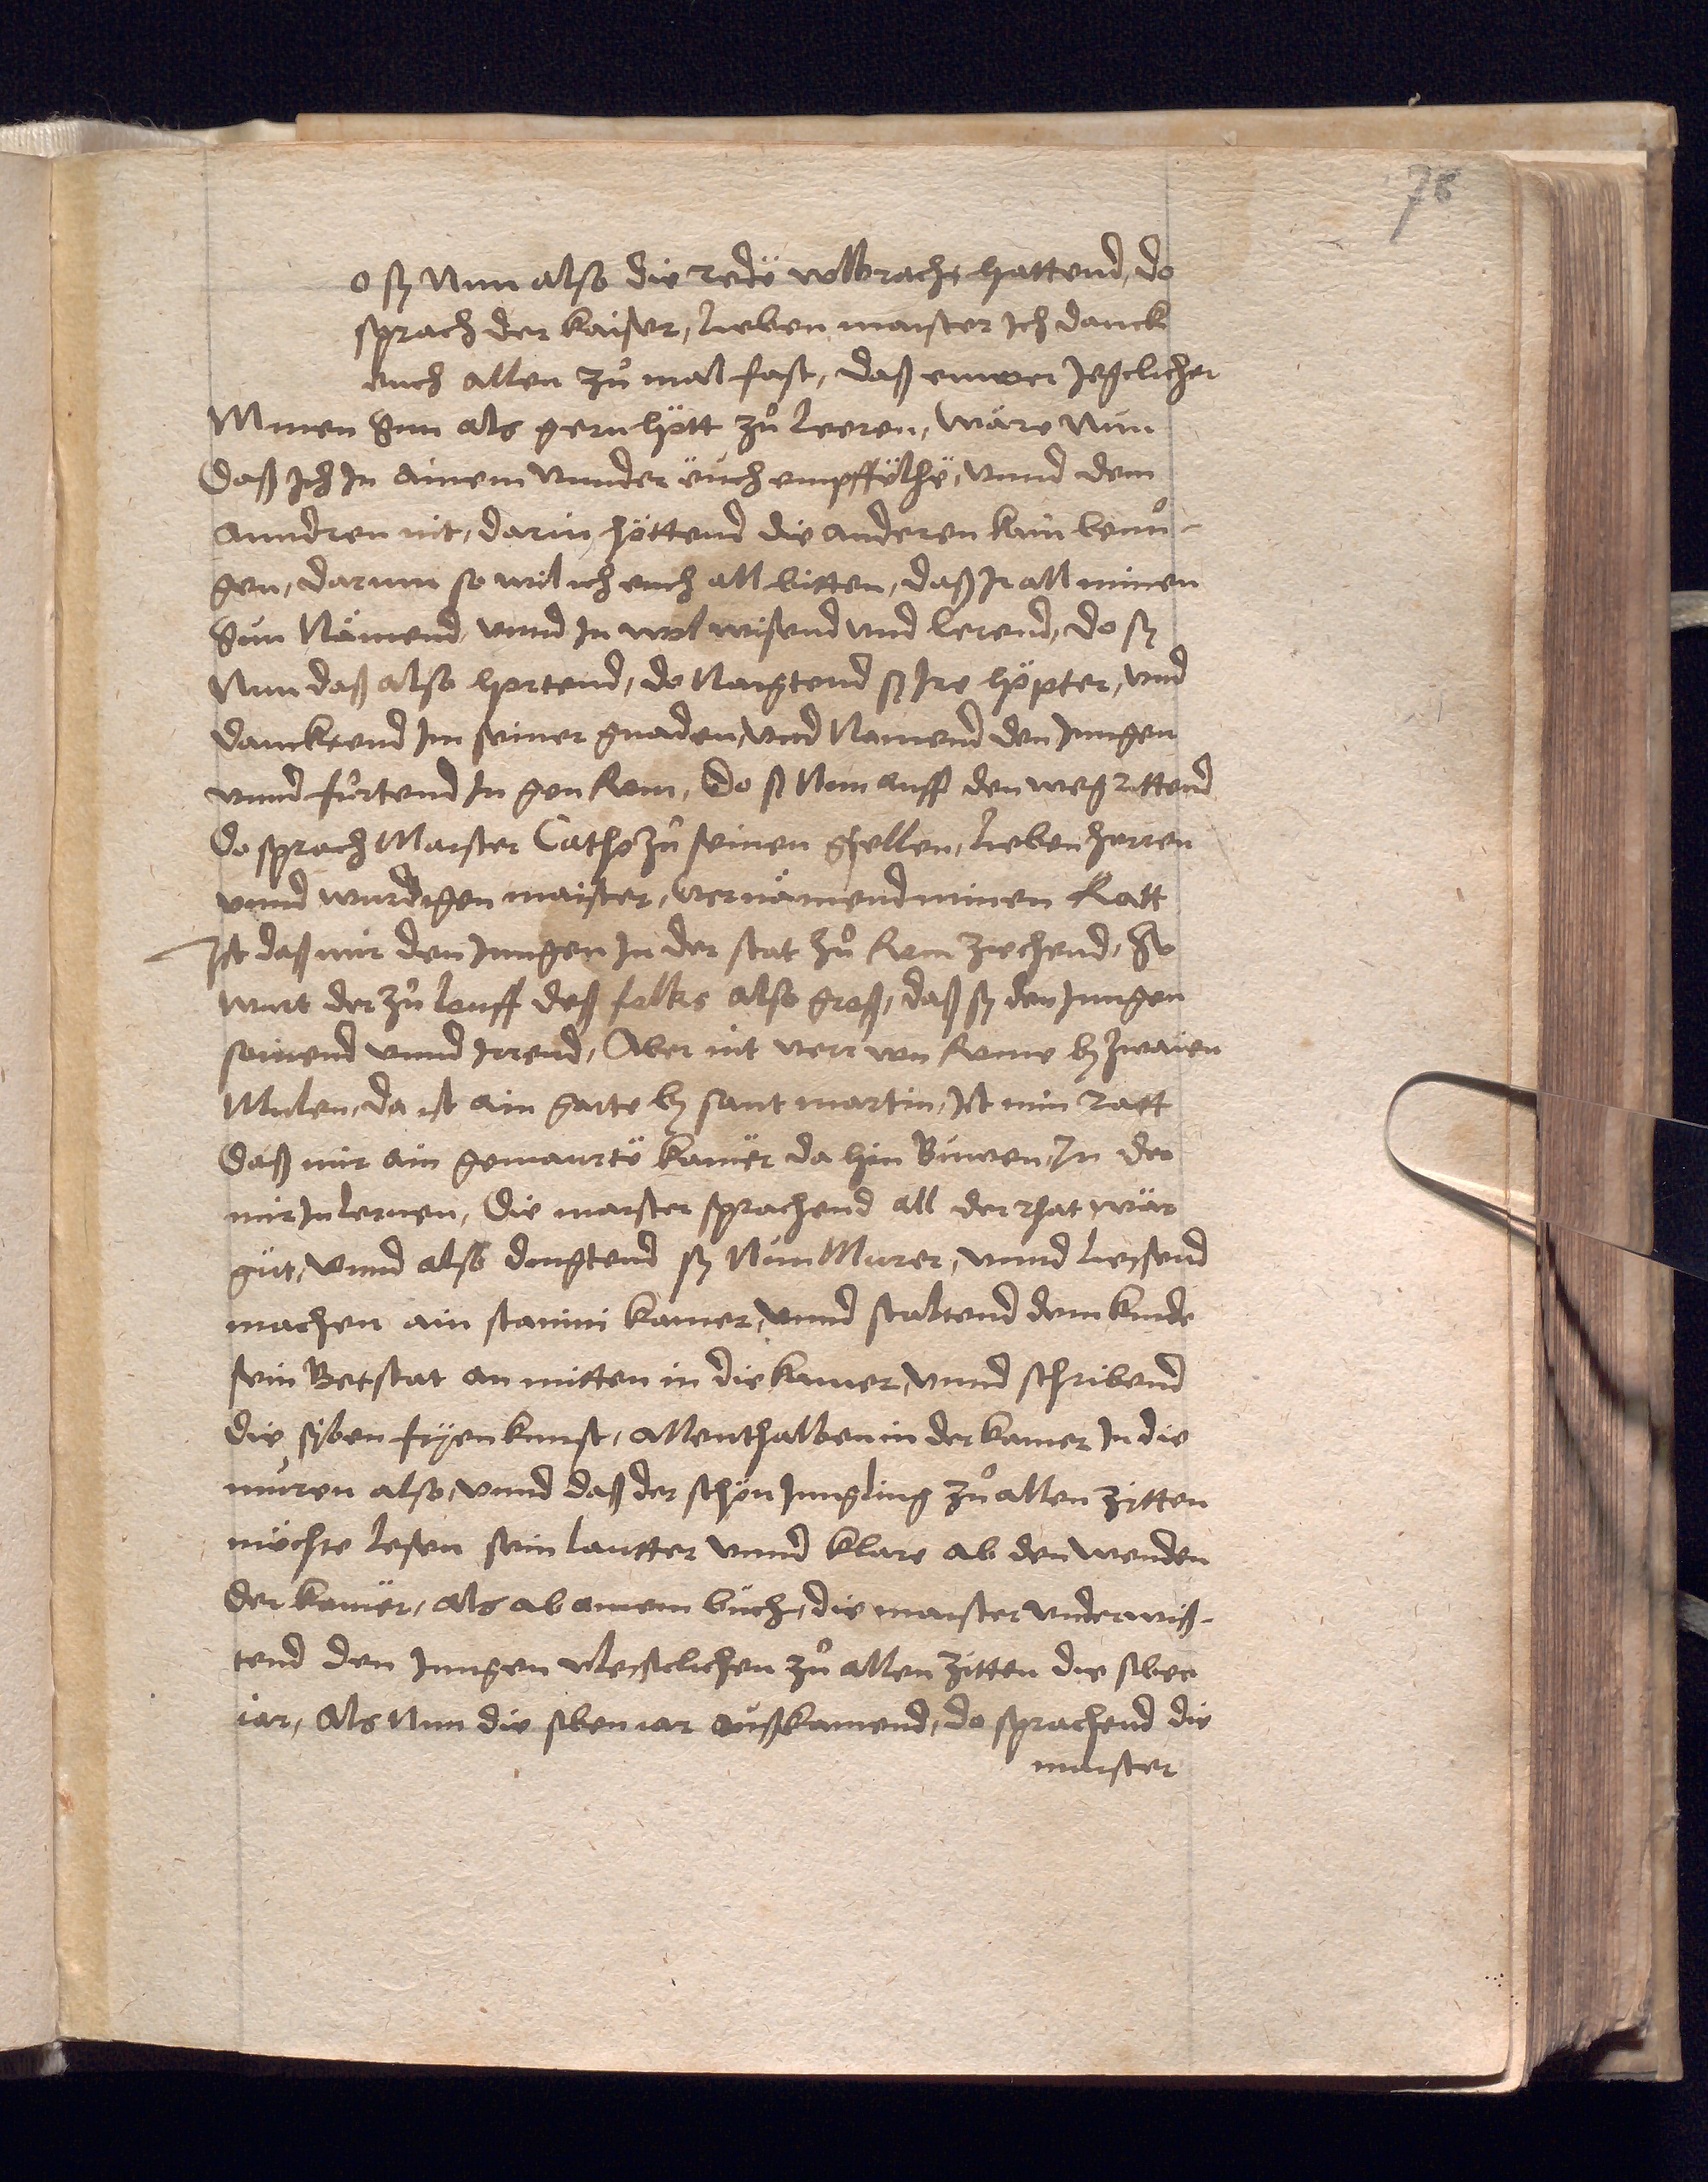 78
o sy Nun also die redë volbracht hattend, do
sprach der kaiser, Lieben maister Ich danck
euch allen zů mal fast, daß euwer Jegclicher
Minen Sun als gern hött zů leeren, wäre Nun
Daß Ich In ainem vnnder ëuch empffëlhe, vnnd dem
anndren nit, darin höttend die anderen kain benů-
gen, darum so wil ich euch all bitten, daß Ir all minen
Sun Nämend, vnnd In wol wisend vnd lerend, do sy
Nun daß also hortend, do Naigtend sy Ire höpter, vnd
dancktend Im seiner gnaden, vnd Namend den Jungen
vnnd fůrtend In gen Rom, Do sy Nun auff den weg rittend
Do sprach Maister Catho zů seinen gsellen, Lieben herren
vnnd wurdigen maister, vernämend minen Ratt
Ist daß mir den Jungen In der stat zů Rom ziechend, So
wirt der zů louff deß folks also groß, daß sy den Jungen
somend vnnd Irrend, Aber nit verr von Rome by zwaien
Milen, da ist ain garte by sant martin, Ist min ratt
Daß mir ain gemaurtë kamër da hin Buwen, In der
mir In lernen, Die maister sprachend all der rhat wär
gůt, vnnd also dingtend sy Nun Murer, vnnd liessend
machen ain stainin kamer, vnnd staltend dem kinde
sein Betstat an mitten in die kamer, vnnd schribend
die syben fryen kunst, allenthalben in der kamer In die
muren also, vnnd daß der schön Jungling zů allen zytten
möchte lesen sein lautter vnnd klare ab den wenden
der kamër, als ab ainem bůch, die maister vnderwiß-
tend den Jungen vleisclichen zů allen zitten die siben
iar, Als Nun die siben iar aůßkamend, do sprachend die
maister